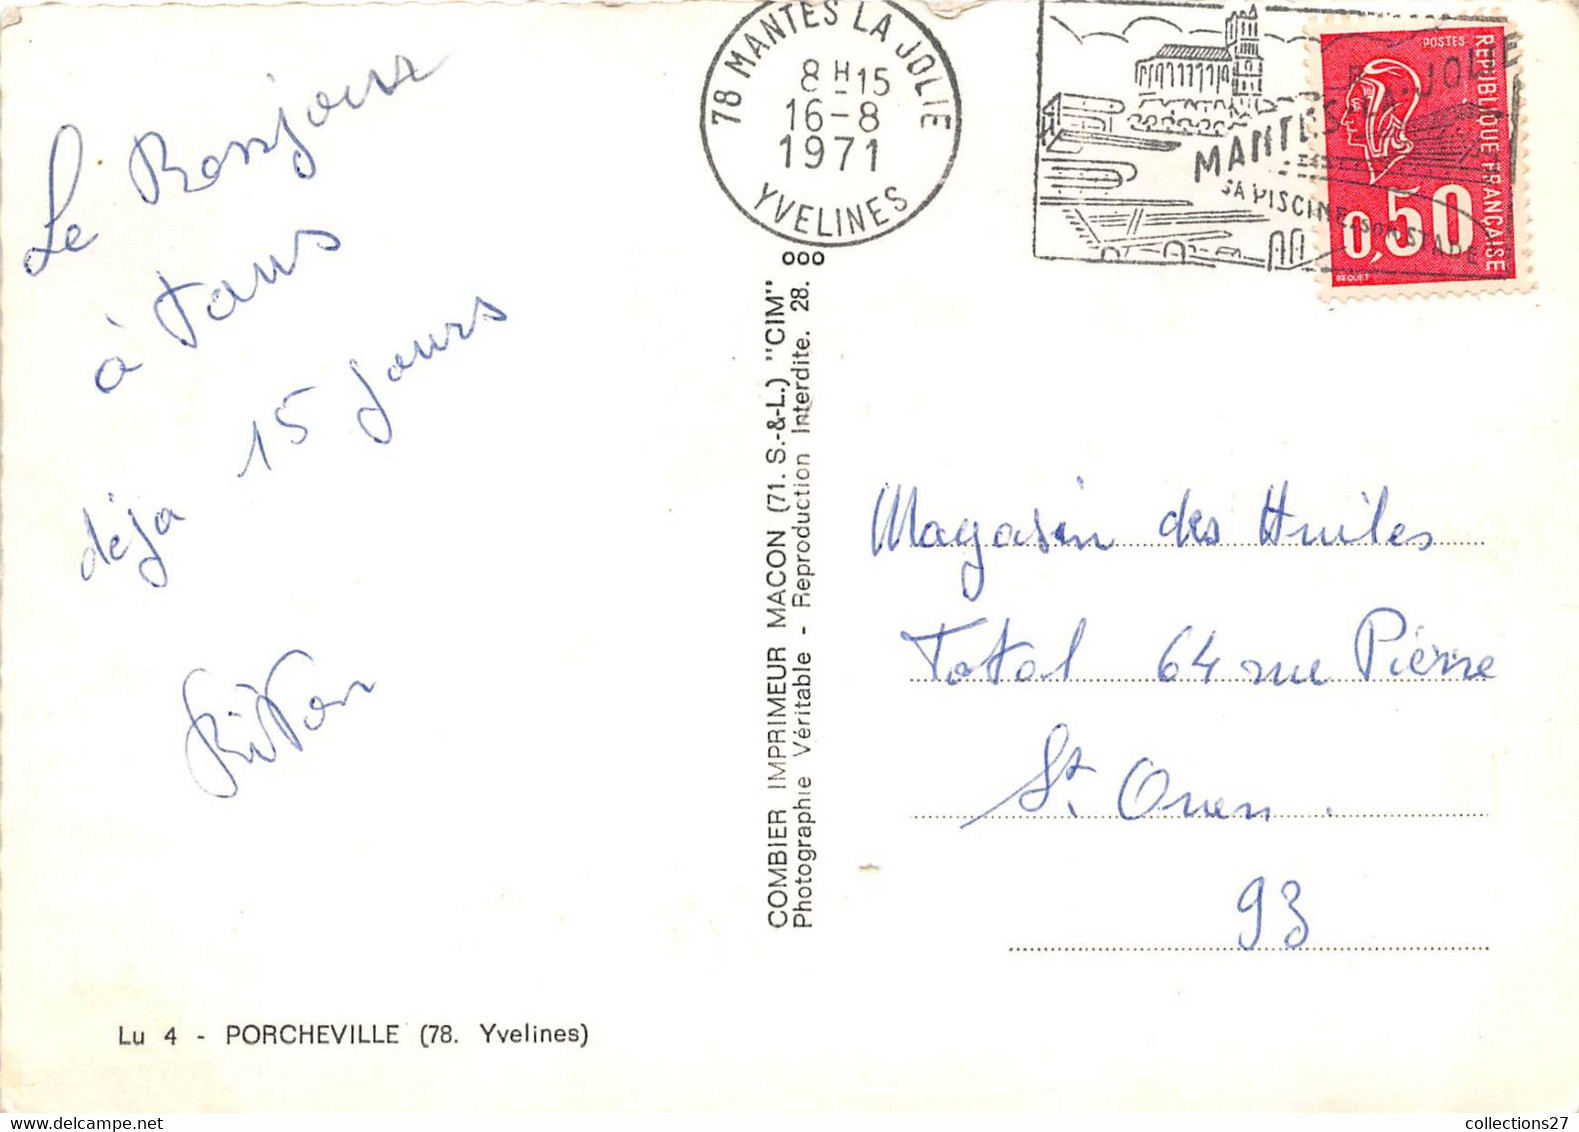 Le Bonjour
à tous
déja 15 jours
Riton
Lu 4 - PORCHEVILLE (78. Yvelines)
COMBIER IMPRIMEUR MACON (71. S.-&-L.) "CIM"
Photographie Véritable - Reproduction Interdite. 28.
78 MANTES LA JOLIE
8H15
16-8
1971
YVELINES
MANTES-LA-JOLIE
SA PISCINE SON STADE
POSTES
REPUBLIQUE FRANÇAISE
0,50
BEQUET
Magasin des Huiles
Total 64 rue Pierre
St. Ouen.
93
collections27